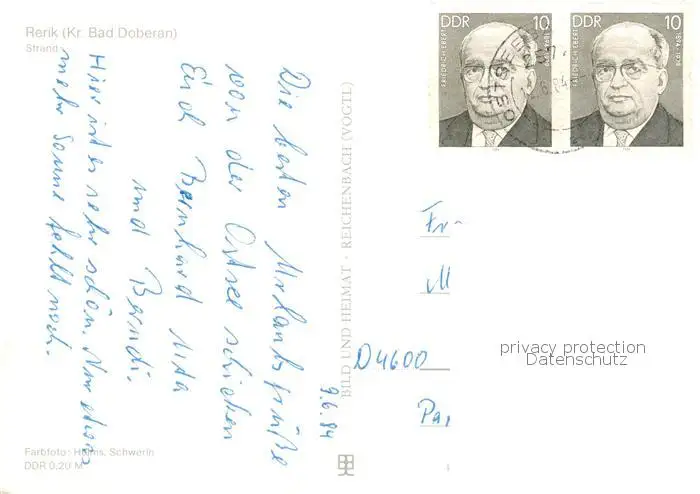 Rerik (Kr. Bad Doberan)
Strand
DDR 10
FRIEDRICH EBERT 1894-1979
DDR 10
FRIEDRICH EBERT 1894-1979
Die besten Urlaubsgrüße
von der Ostsee schicken
Euch Bernhard Uta
und Berndi.
Hier ist es sehr schön. Nur etwas
mehr Sonne fehlt noch.
9.6.84
BILD UND HEIMAT · REICHENBACH (VOGTL)
Fr
M
D4600
Pa
privacy protection
Datenschutz
Farbfoto: Helms, Schwerin
DDR 0,20 M